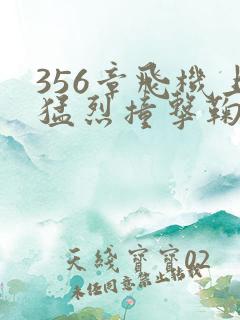 356章飛機上
猛烈撞擊鞠
天綫寶寶02
未經同意禁止轉載